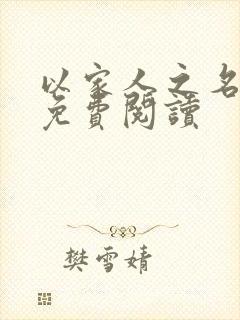 以家人之名
免費閱讀
樊雪婧